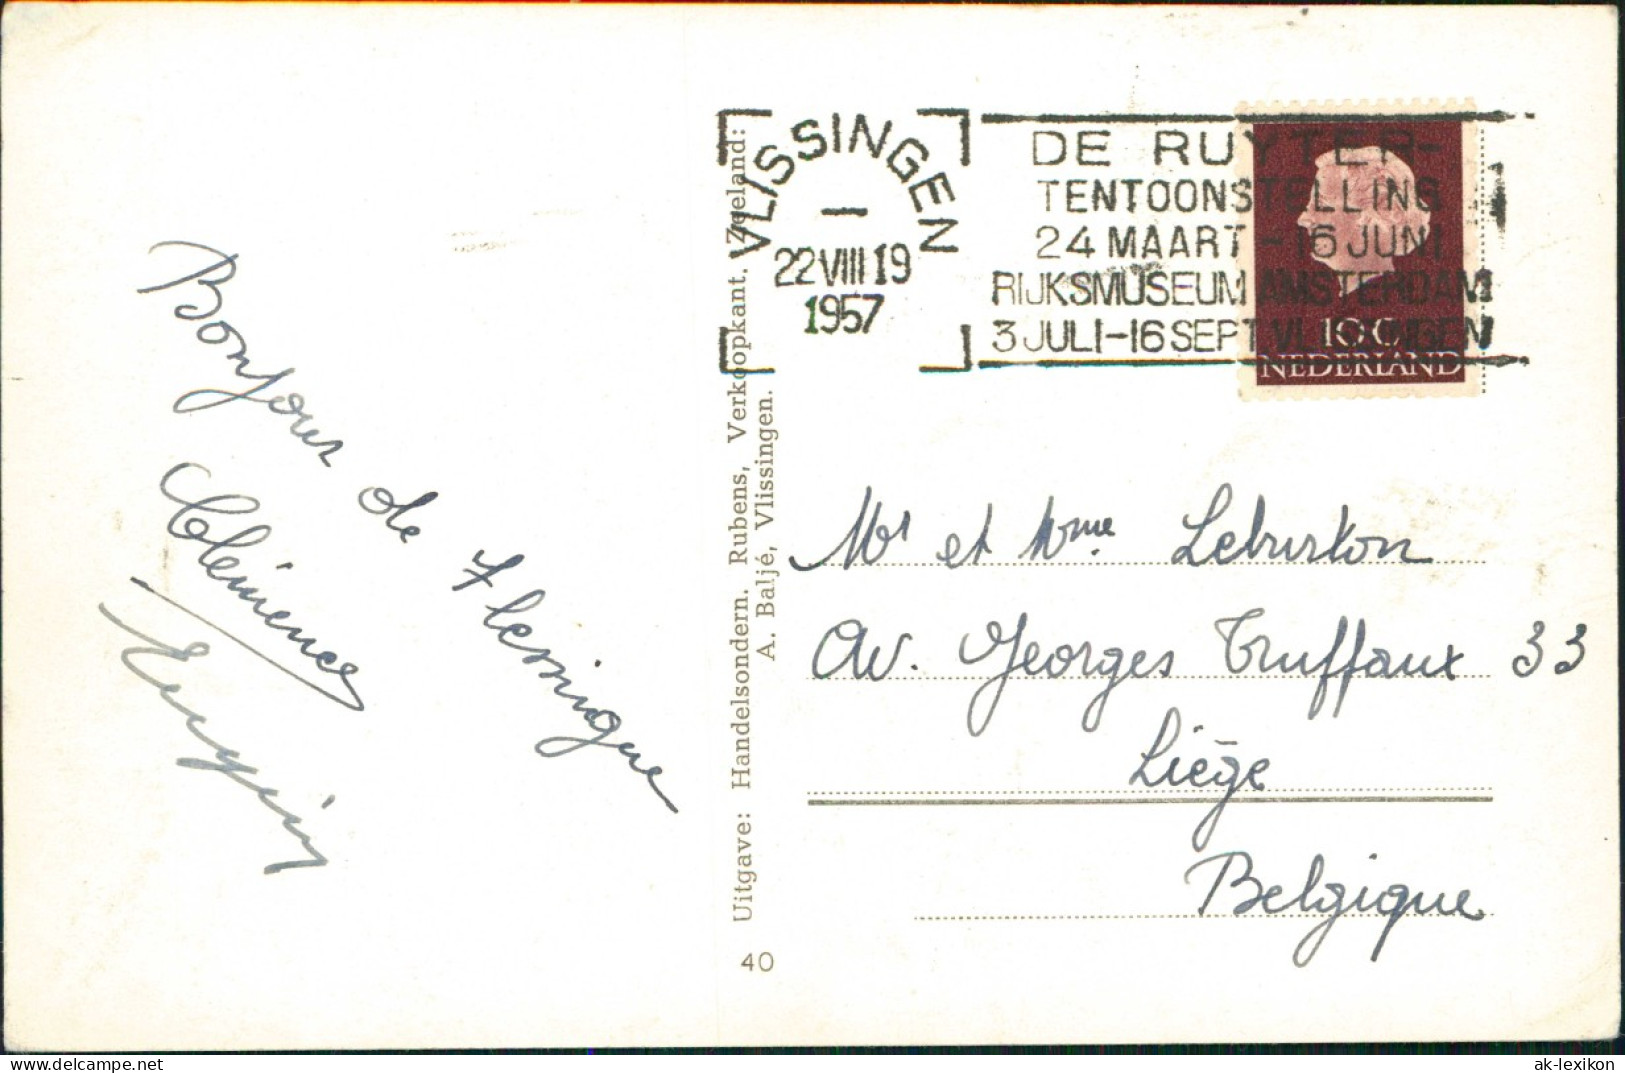 Bonjour de Flessingue
Clémence
VLISSINGEN
22 VIII 19
1957
DE RUYTER-
TENTOONSTELLING
24 MAART - 16 JUNI
RIJKSMUSEUM AMSTERDAM
3 JULI-16 SEPT VLISSINGEN
10 C
NEDERLAND
Uitgave: Handelsondern. Rubens, Verkoopkant. Zeeland:
A. Baljé, Vlissingen.
40
Mr et Mme
Av. Georges Truffaux 33
Liège
Belgique
ak-ansichtskarten.de
ak-lexikon